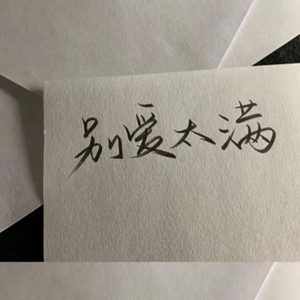 别爱太满